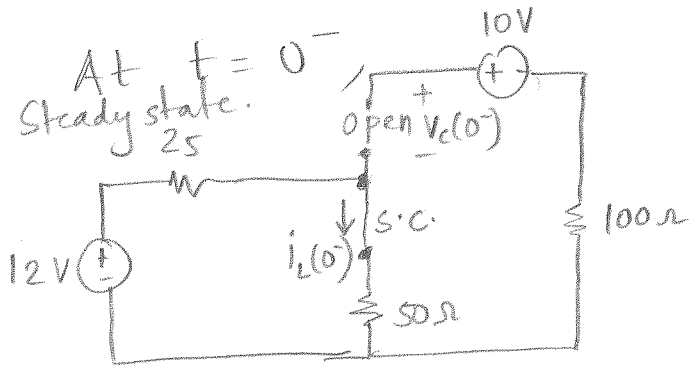 At t = 0⁻
Steady state.
10V
+ -
+
open Vc(0⁻)
-
25
S.C.
iL(0⁻)
12V
+
-
50Ω
100Ω